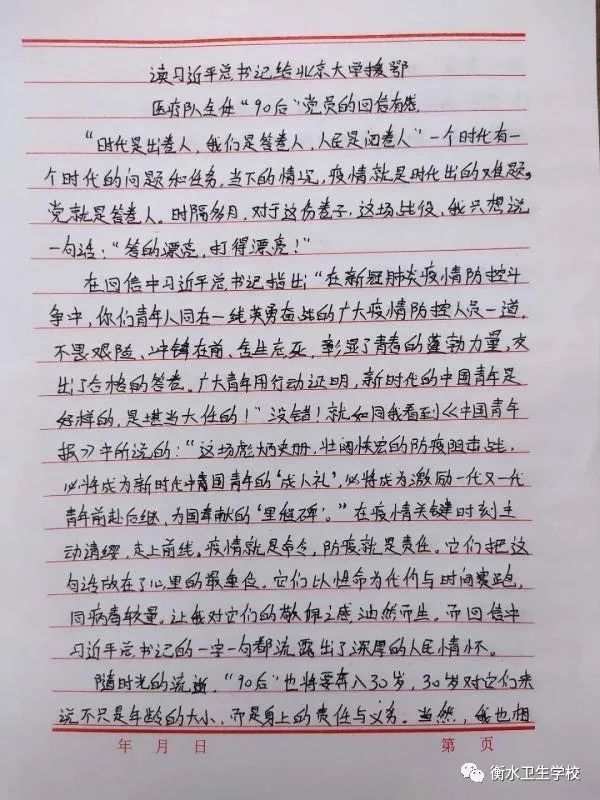 读习近平总书记给北京大学援鄂
医疗队全体“90后”党员的回信有感
“时代是出卷人，我们是答卷人，人民是阅卷人”一个时代有一
个时代的问题和任务，当下的情况，疫情就是时代出的难题。
党就是答卷人。时隔多月，对于这份卷子，这场战役，我只想说
一句话：“答的漂亮，打得漂亮！”
在回信中习近平总书记指出：“在新冠肺炎疫情防控斗
争中，你们青年人同在一线英勇奋战的广大疫情防控人员一道，
不畏艰险、冲锋在前、舍生忘死，彰显了青春的蓬勃力量，交
出了合格的答卷。广大青年用行动证明，新时代的中国青年是
好样的，是堪当大任的！”没错！就如同我看到《中国青年
报》中所说的：“这场彪炳史册，壮阔恢宏的防疫阻击战，
必将成为新时代中国青年的‘成人礼’，必将成为激励一代又一代
青年前赴后继，为国奉献的‘里程碑’。”在疫情关键时刻主
动请缨，走上前线，疫情就是命令，防疫就是责任。它们把这
句话放在了心里的最重位。它们以性命为代价与时间赛跑，
同病毒较量。让我对它们的敬佩之感油然而生。而回信中
习近平总书记的一字一句都流露出了深厚的人民情怀。
随时光的流逝，“90后”也将要奔入30岁，30岁对它们来
说不只是年龄的大小，而是身上的责任与义务。当然，我也相
年 月 日 第 页
衡水卫生学校